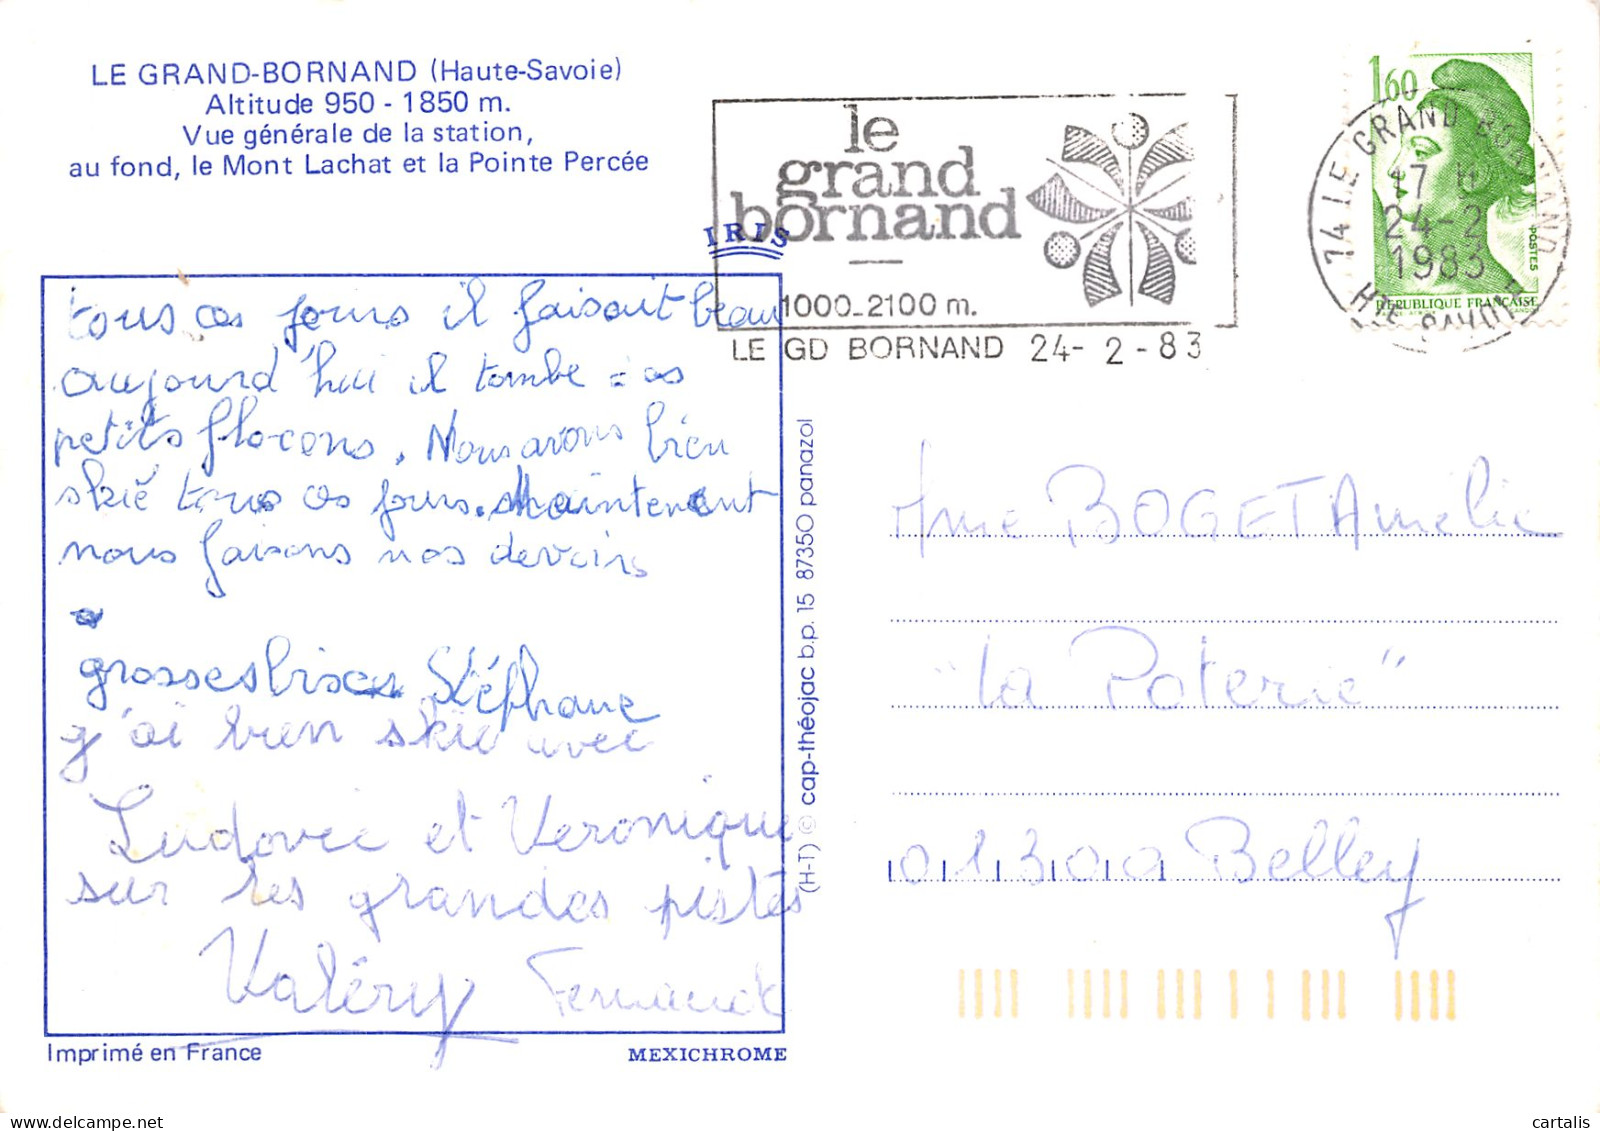 LE GRAND-BORNAND (Haute-Savoie)
Altitude 950 - 1850 m.
Vue générale de la station,
au fond, le Mont Lachat et la Pointe Percée
le
grand
bornand
1000-2100 m.
LE GD BORNAND 24- 2 -83
1,60
74 LE GRAND BORNAND
17 H
24-2
1983
HTE SAVOIE
POSTES
REPUBLIQUE FRANCAISE
IRIS
tous ces jours il faisait beau
aujourd'hui il tombe des
petits flocons. Nous avons bien
skié tous ces jours. Maintenant
nous faisons nos devoirs
grosses bises Stéphane
j'ai bien skié avec
Ludovic et Veronique
sur les grandes pistes
Valéry Fernande
Imprimé en France
MEXICHROME
(H-T) © cap-théojac b.p. 15 87350 panazol
Mme BOGET Amélie
"la Poterie"
01300 Belley
cartalis